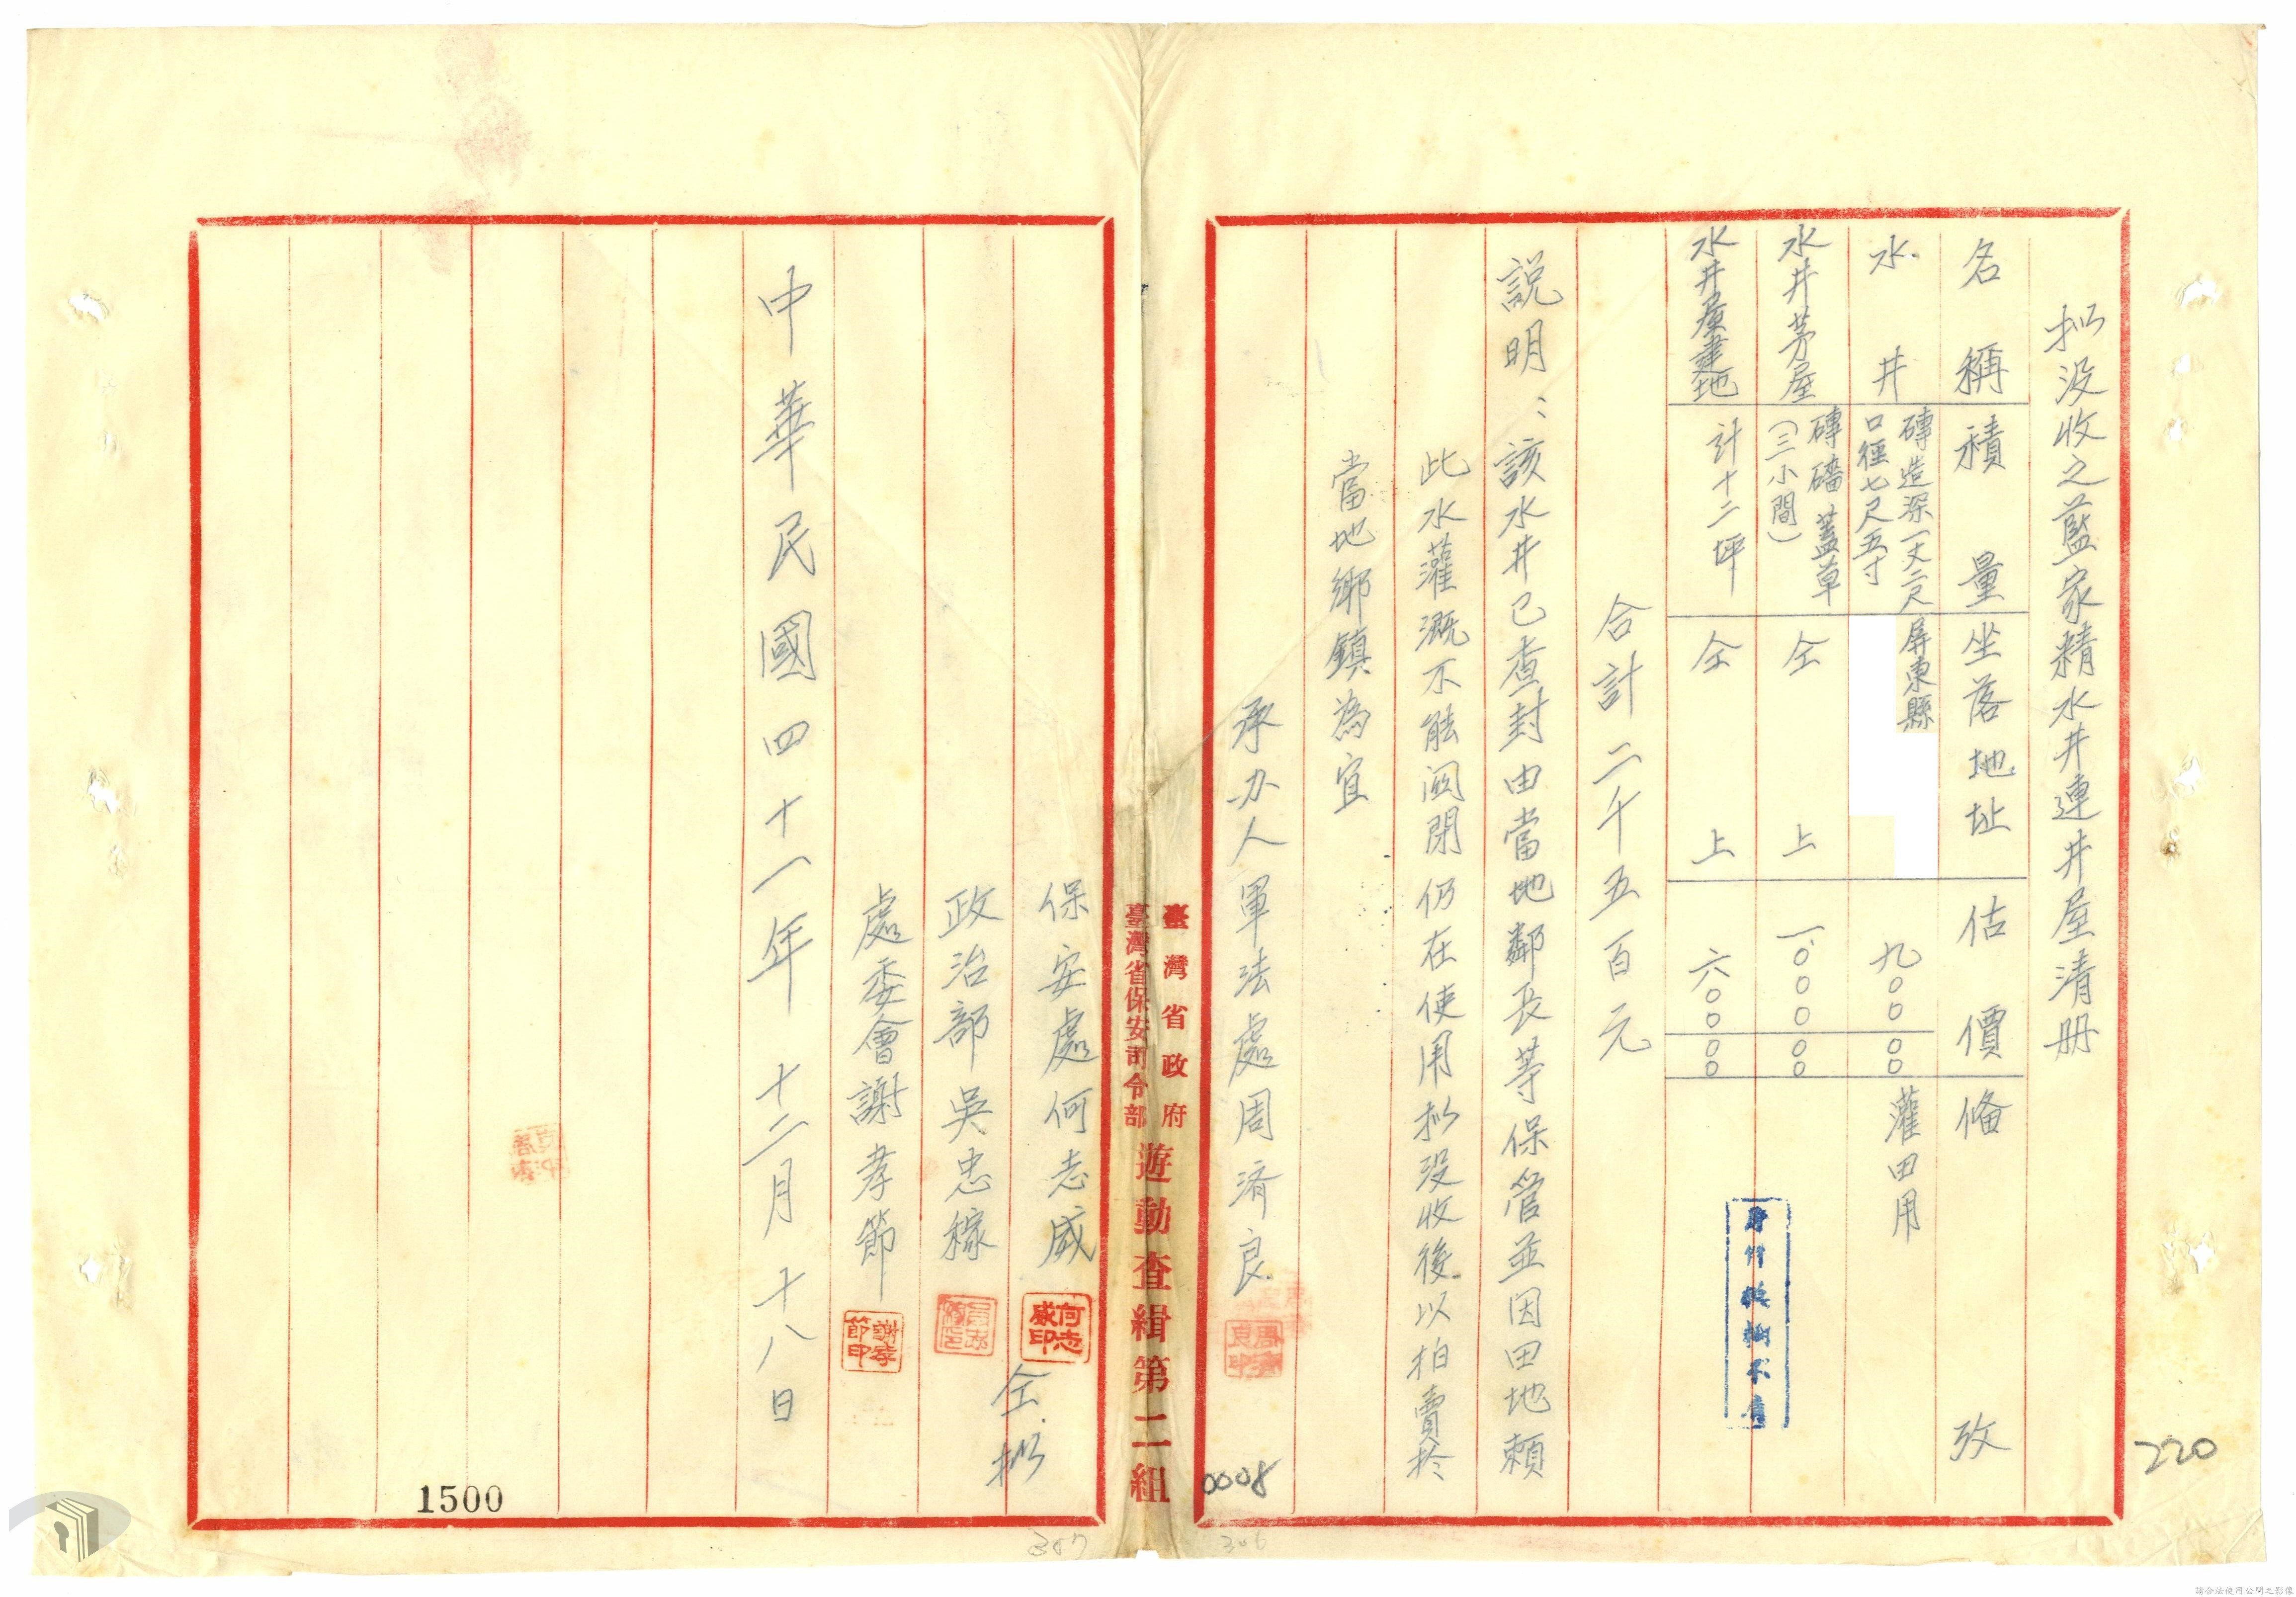 拟没收之藍家精水井連井屋清册
名稱 積量 坐落地址 估價 俻攷
水井 磚造深一丈二尺 口徑七尺五寸 屏東縣 九〇〇 〇〇 灌田用
水井茅屋 磚墻蓋草 (三小間) 仝上 一、〇〇〇 〇〇
水井屋建地 計十二坪 仝上 六〇〇 〇〇
合計二千五百元
説明：該水井已查封由當地鄰長等保管並因田地賴
此水灌溉不能関閉仍在使用拟没收後以拍賣於
當地鄉鎮為宜
承办人軍法處周濟良
0008
220
306
臺灣省政府
臺灣省保安司令部
遊動查緝第二組
保安處何志威
何志威印
政治部吳忠稼
處委會謝孝節
謝孝節印
仝拟
中華民國四十一年十二月十八日
1500
307
請合法使用公開之影像